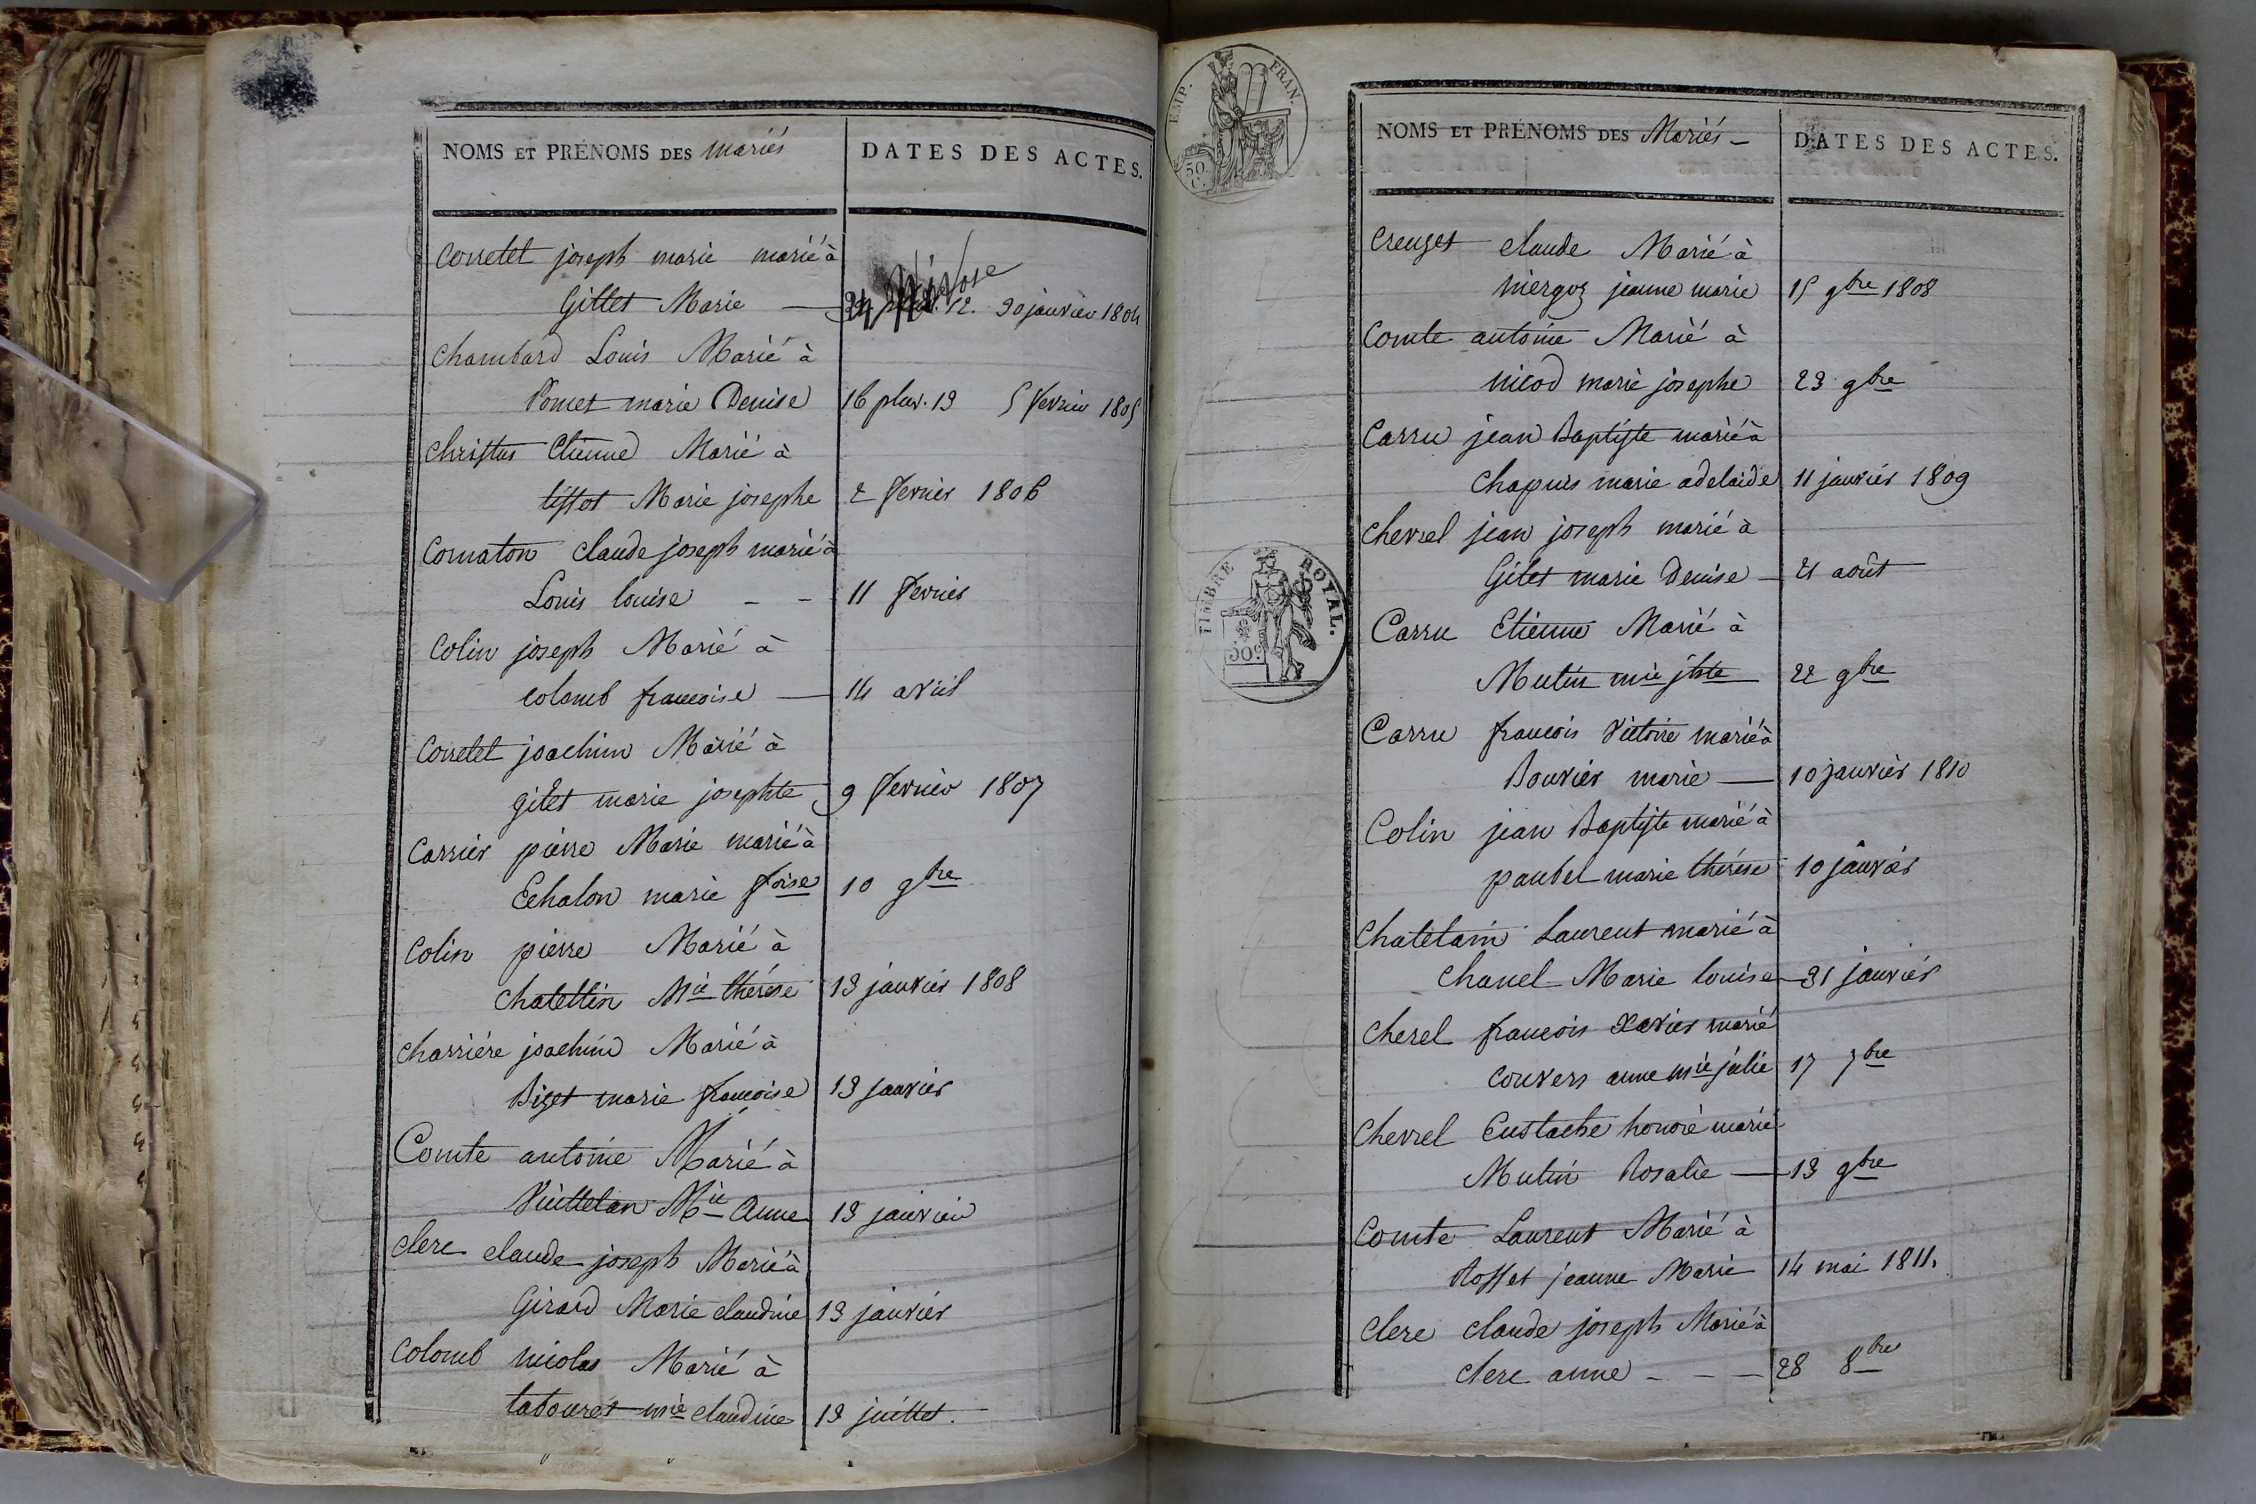 NOMS ET PRÉNOMS DES mariés
DATES DES ACTES.
Corretet joseph marie marié à
Gillet Marie — Nivose 12. 30 janvier 1804
Chambard Louis Marié à
Pomet marie Denise 16 pluv. 13 5 fevrier 1805
Christus Etienne Marié à
tissot Marie josephe 2 fevrier 1806
Comaton Claude joseph marié à
Louis louise - - 11 fevrier
Colin joseph Marié à
Colomb francoise — 14 avril
Corretet joachim Marié à
gilet marie josephte 9 fevrier 1807
Carrier pierre Marie marié à
Echalon marie foise 10 9bre
Colin pierre Marié à
Chatellin Mie thérése 13 janvier 1808
Charriére joachim Marié à
Bizet marie francoise 13 janvier
Comte antoine Marié à
Vuilletan Mie Anne 13 janvier
Clerc claude joseph Marié à
Girard Marie claudine 13 janvier
Colomb nicolas Marié à
tabouret mie claudine 13 juillet.
EMP. FRAN.
50 C.
NOMS ET PRÉNOMS DES Mariés -
DATES DES ACTES.
Creuzet claude Marié à
niergoz jeanne marie 15 9bre 1808
Comte antoine Marié à
nicod marie josephe 23 9bre
Carru jean Baptiste marié à
Chapuis marie adelaide 11 janvier 1809
Chevrel jean joseph marié à
Gilet marie Denise — 21 août
TIMBRE ROYAL.
50c
Carru Etienne Marié à
Mutin mie jhte 22 9bre
Carru francois Victoire marié à
Bouvier marie — 10 janvier 1810
Colin jean Baptiste marié à
paubel marie thérése 10 janvier
Chatelain Laurent marié à
Chanel Marie louise — 31 janvier
Cherel francois Xavier marié
Couvers anne mie julie 17 7bre
Chevrel Eustache honoré marié
Mutin Rosalie — 13 9bre
Comte Laurent Marié à
Rosset jeanne Marie 14 mai 1811.
Clerc claude joseph Marié à
Clerc anne - - - 28 8bre